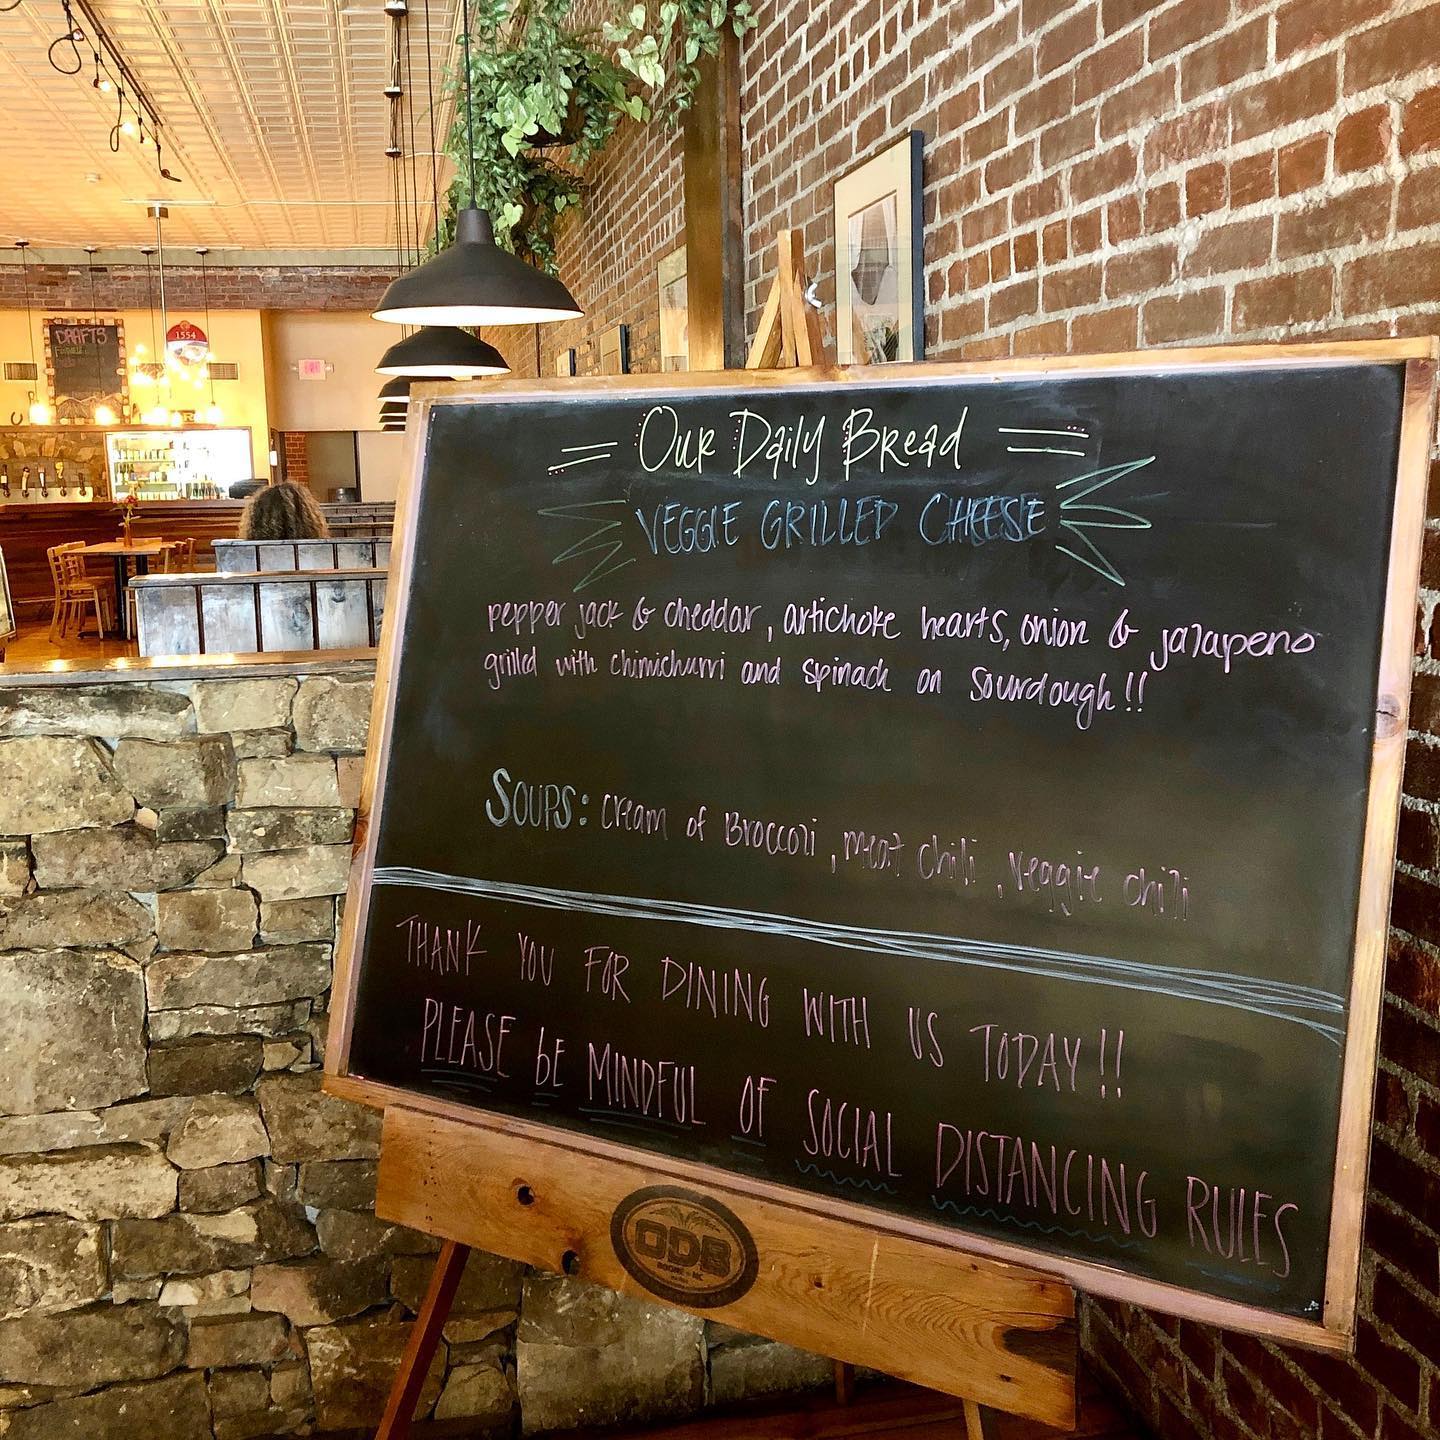 DRAFTS
1554
= Our Daily Bread =
VEGGIE GRILLED CHEESE
pepper jack & cheddar, artichoke hearts, onion & jalapeno
grilld with chimichurri and spinach on Sourdough!!
SOUPS: cream of Broccoli, meat chili, veggie chili
THANK YOU FOR DINING WITH US TODAY!!
PLEASE bE MINDFUL OF SOCIAL DISTANCING RULES
ODB
BOONE NC